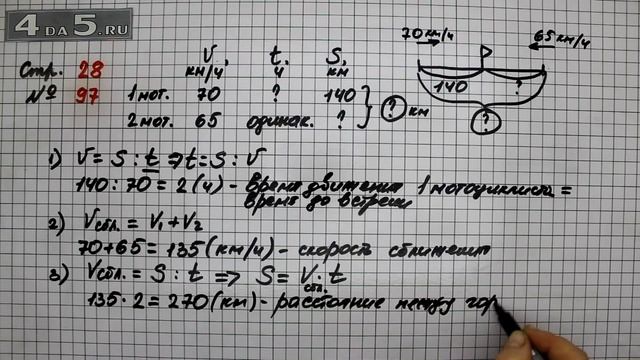 4 DA 5.RU
70 км/ч 65 км/ч
Стр. 28
№ 97
V, км/ч t, ч S, км
1 мот. 70 ? 140
2 мот. 65 одинак. ?
? км
140 ?
?
1) V = S : t ⇒ t = S : V
140 : 70 = 2 (ч) - время движения 1 мотоциклиста =
время до встречи
2) Vсбл. = V₁ + V₂
70 + 65 = 135 (км/ч) - скорость сближения
3) Vсбл. = S : t ⇒ S = Vсбл. · t
135 · 2 = 270 (км) - расстояние между гор